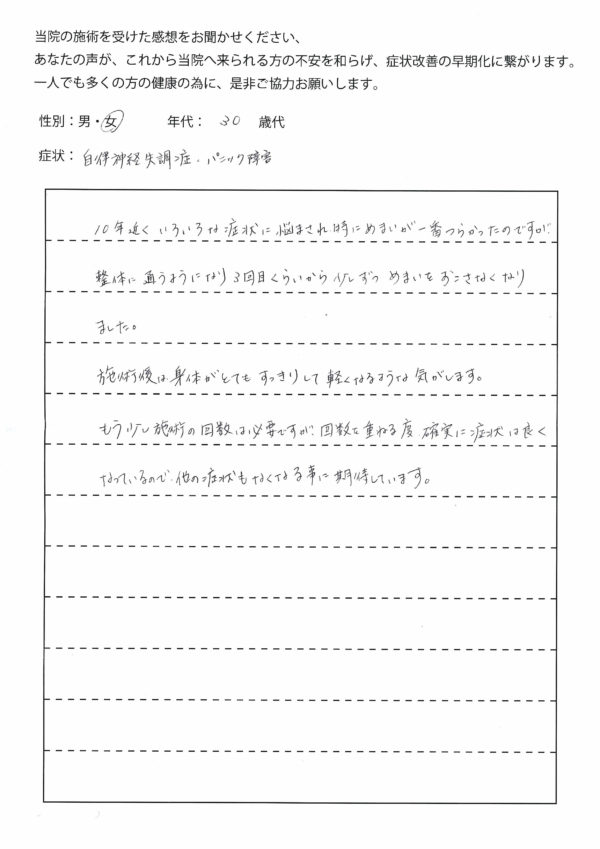 当院の施術を受けた感想をお聞かせください、
あなたの声が、これから当院へ来られる方の不安を和らげ、症状改善の早期化に繋がります。
一人でも多くの方の健康の為に、是非ご協力お願いします。
性別：男・女　年代：30 歳代
症状：自律神経失調症・パニック障害
10年近くいろいろな症状に悩まされ時にめまいが一番つらかったのですが
整体に通うようになり3回目くらいから少しずつめまいをおこさなくなり
ました。
施術後は身体がとてもすっきりして軽くなるような気がします。
もう少し施術の回数は必要ですが、回数を重ねる度、確実に症状は良く
なっているので、他の症状もなくなる事に期待しています。